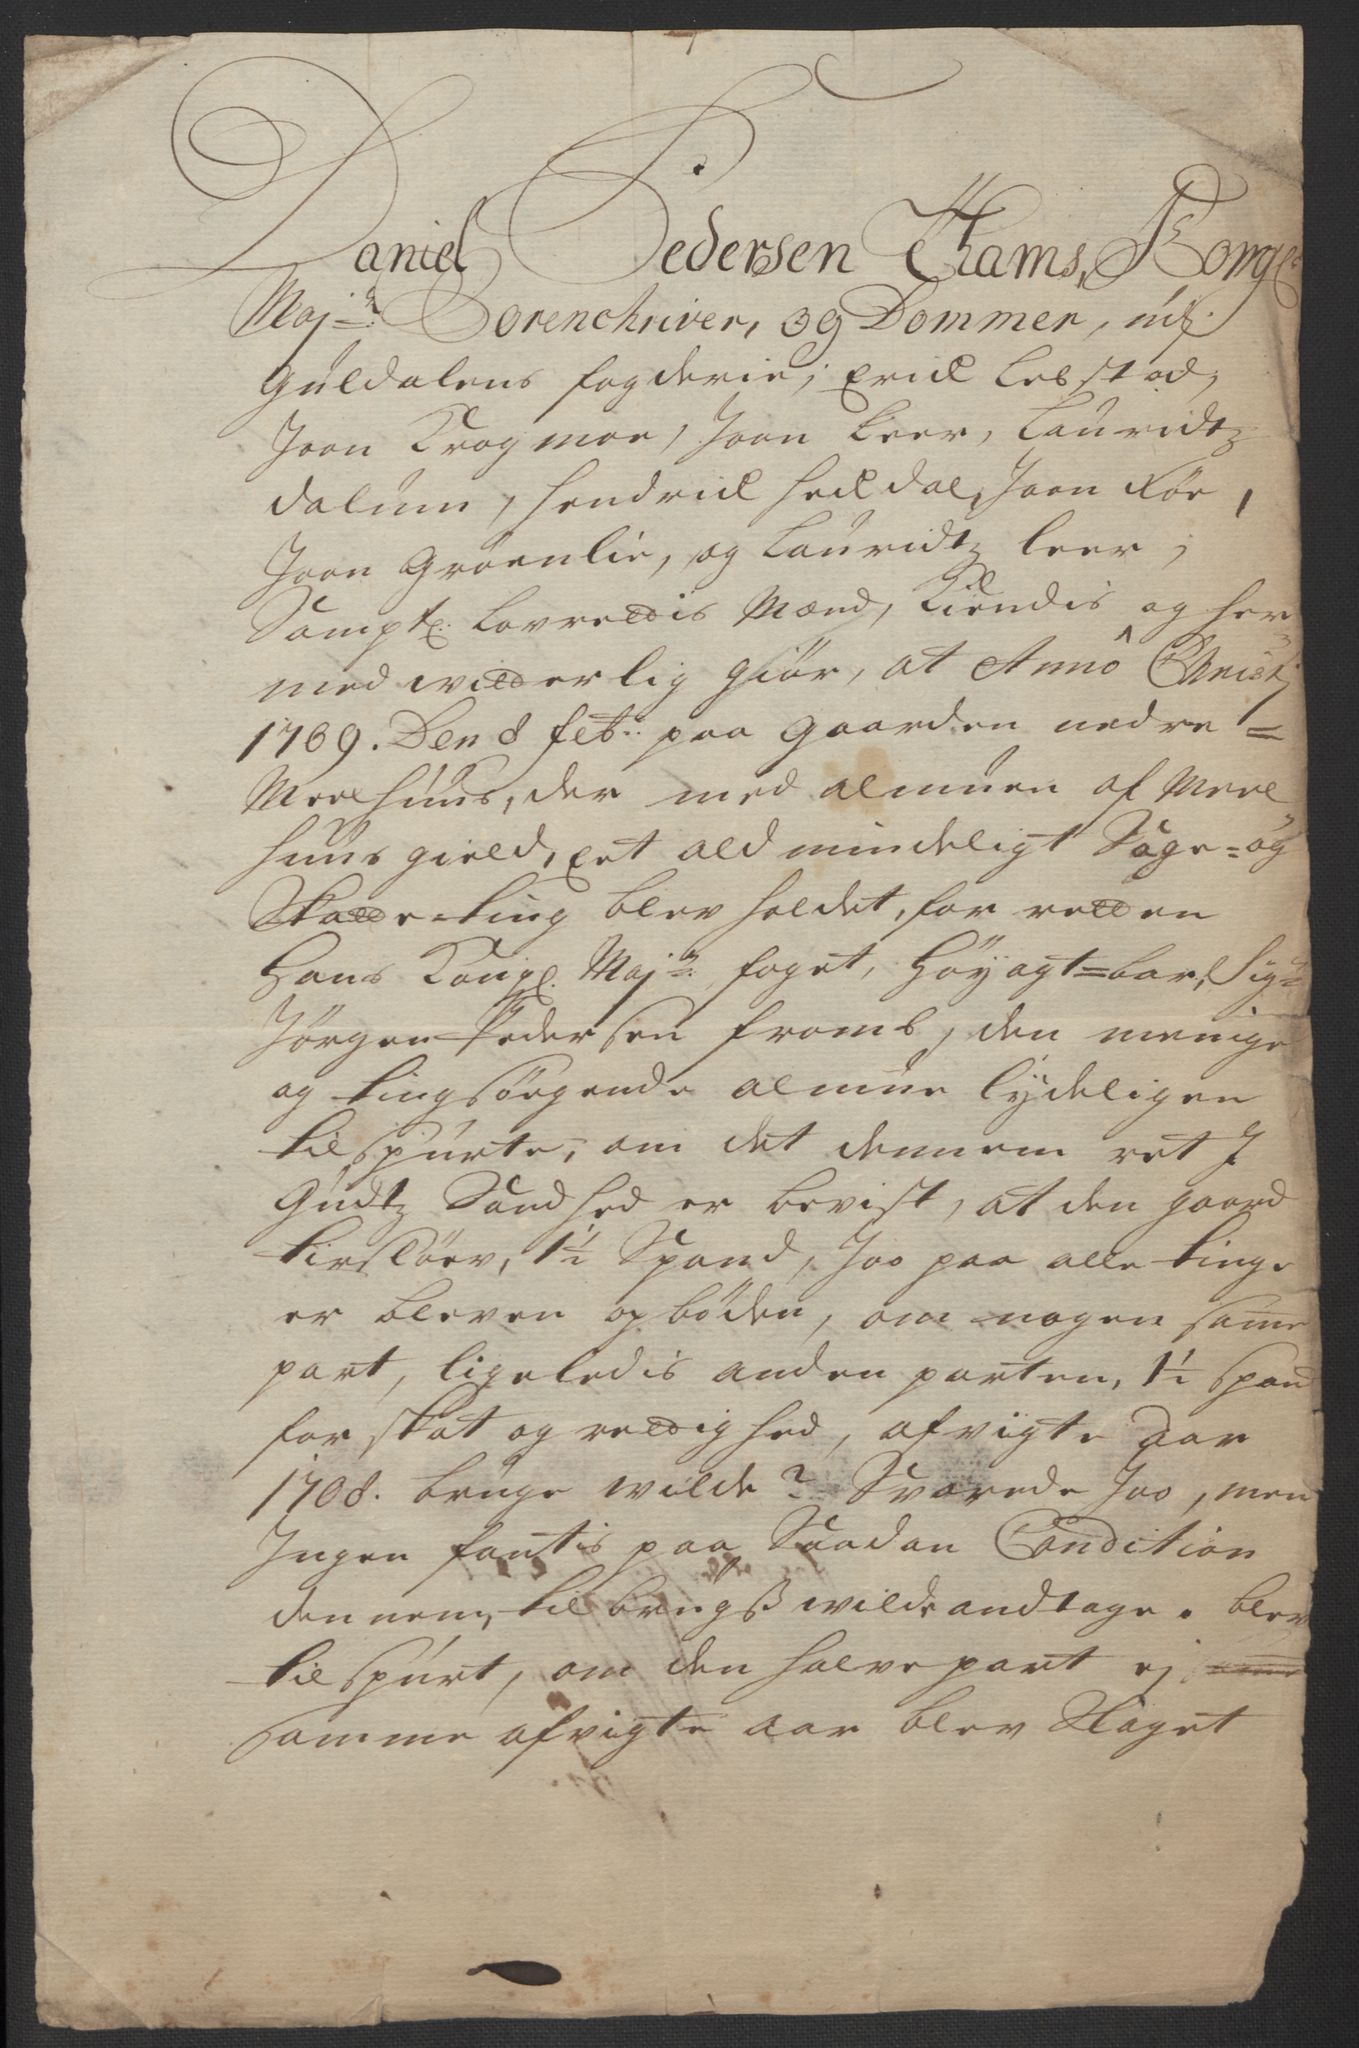 Daniel Pedersen Thams, Kongl:
Maj:ts Sorenchriver, og Dommer, udj
Guldalens fogderie; Erich Lebstad,
Joen Krogmoe, Joen Leer, Lauridtz
dalum, Hendrich Heckdal, Joen Röe,
Joen Gröenlie, og Lauridtz Leer;
Sampt: Lovrettis Mænd, Kiendis og her
med witterlig giör, at Annô Christi
1709. Den 8 feb: paa gaarden nedre=
Meelhuus, der med almuen af Meel
huus gield, eet ald mindeligt Sage=og
Skatte-ting blev holdet, for retten
Hans Kongl. Maj:ts foget, Höyagt=bar, Sig:r
Jörgen Pedersen fromb, den menige
og tingsöegende almue lydeligen
tilspurte, om det dennem ret J
Gudtz Sandhed er bevist, at den gaard
Kirflöev, 1½ Spand, Joo paa alle tinge
er bleven opböden, om nogen same
part, ligeledis anden parten, 1½ spand
for skat og rettighed, afvigte aar
1708. bruge wilde? Svarede Joo, men
Ingen fantis paa Saadan Condition
dennem, til brugs wilde andtage. blev
tilspurt, om den halve part ej
samme afvigte aar blev Slaget